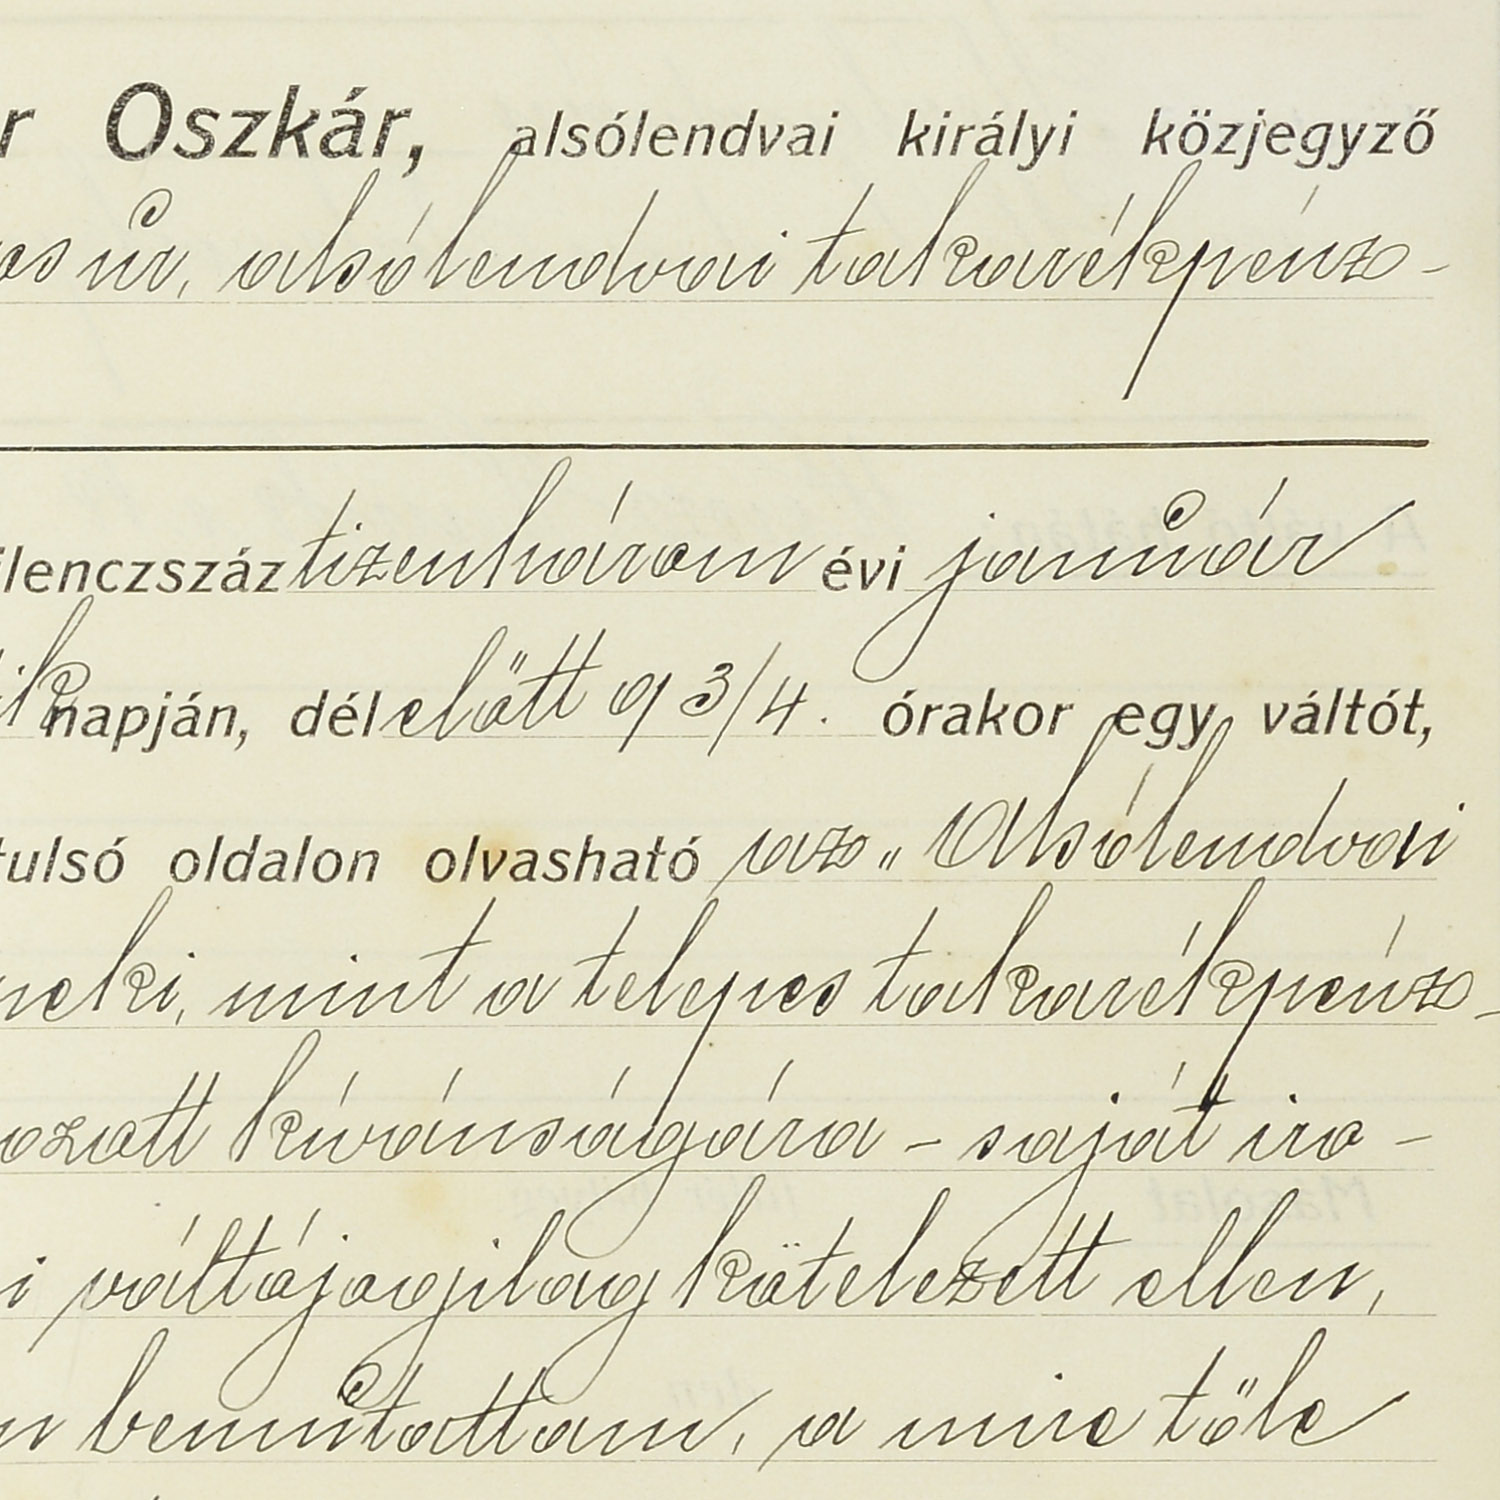 r Oszkár, alsólendvai királyi közjegyző
os úr, alsólendvai takarékpénz-
ilenczszáz tizenhárom évi január
ik napján, délelőtt 9 3/4. órakor egy váltót,
tulsó oldalon olvasható az „Alsólendvai
neki, mint a telepes takarékpénz-
ozott kívánságára - saját iro-
i váltójogilag kötelezett ellen,
n bemutattam, a mire tőle